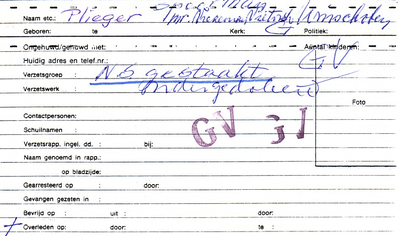 Naam etc.: Plieger
Geboren: te Kerk: Politiek:
Ongehuwd/gehuwd met: Aantal kinderen:
Huidig adres en telef.nr.: GV
Verzetsgroep : NS gestaakt
Verzetswerk : ondergedoken
Foto
Contactpersonen:
Schuilnamen :
GV GV
Verzetsrapp. ingel. dd. : bij:
Naam genoemd in rapp.:
op bladzijde:
Gearresteerd op : door:
Gevangen gezeten in :
Bevrijd op : uit : door:
Overleden op: door: te :